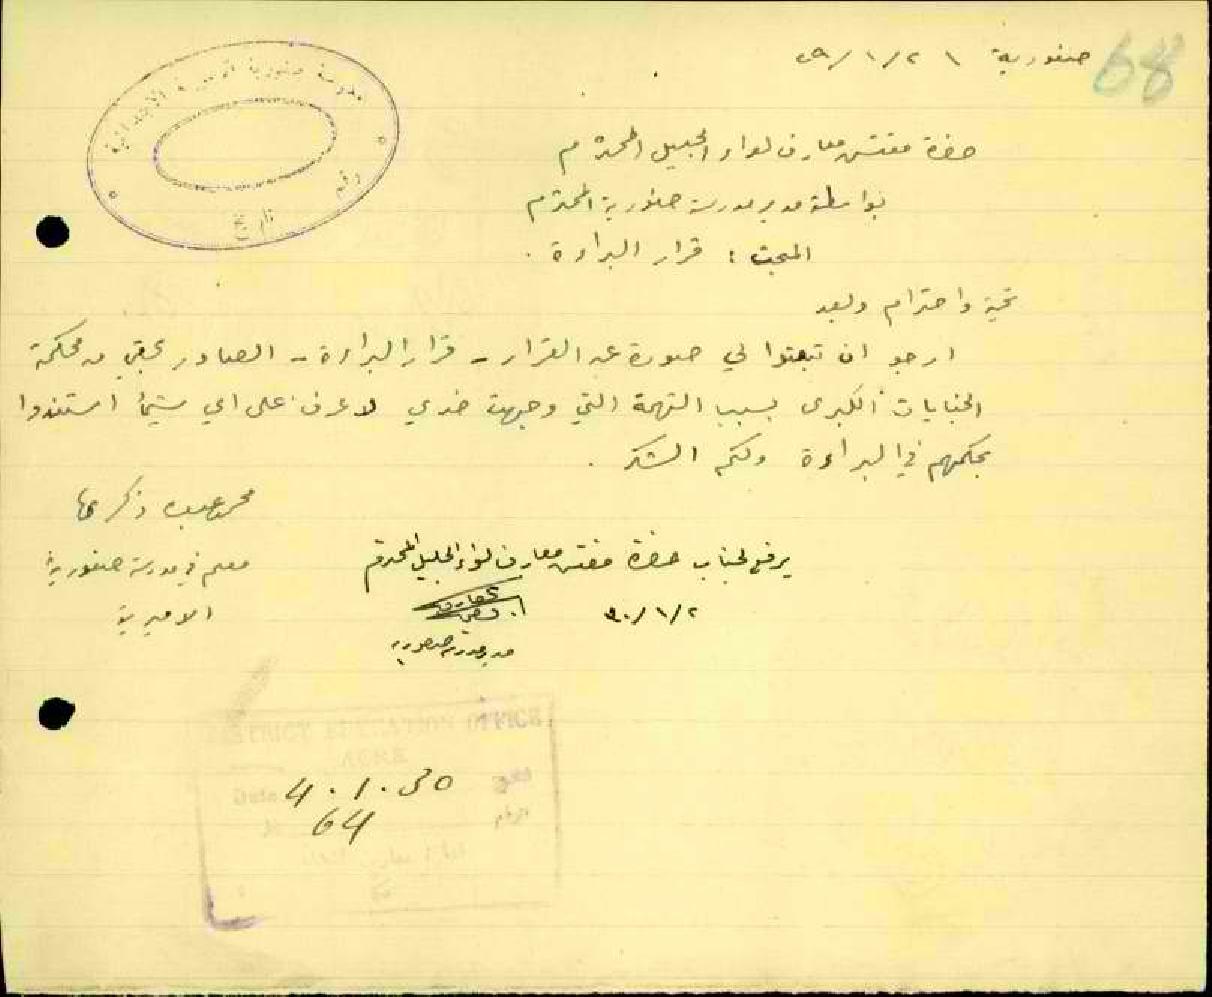 68
صفورية ٢ /١ /٢٩
مدرسة صفورية الاميرية الابتدائية
رقم
تاريخ
حضرة مفتش معارف لواء الجليل المحترم
بواسطة مدير مدرسة صفورية المحترم
المبحث : قرار البراءة .
تحية واحترام وبعد
ارجو ان تبعثوا لي صورة عن القرار - قرار البراءة - الصادر بحقي من محكمة
الجنايات الكبرى بسبب التهمة التي وجهت ضدي لاعرف على اي شيئ استندوا
بحكمهم في البراءة ولكم الشكر .
معلم في مدرسة صفورية
الاميرية
يرفع لجناب حضرة مفتش معارف لواء الجليل المحترم
٣٠/١/٢
مدير مدرسة صفورية
DISTRICT EDUCATION OFFICE
ACRE
Date 4.1.30
64